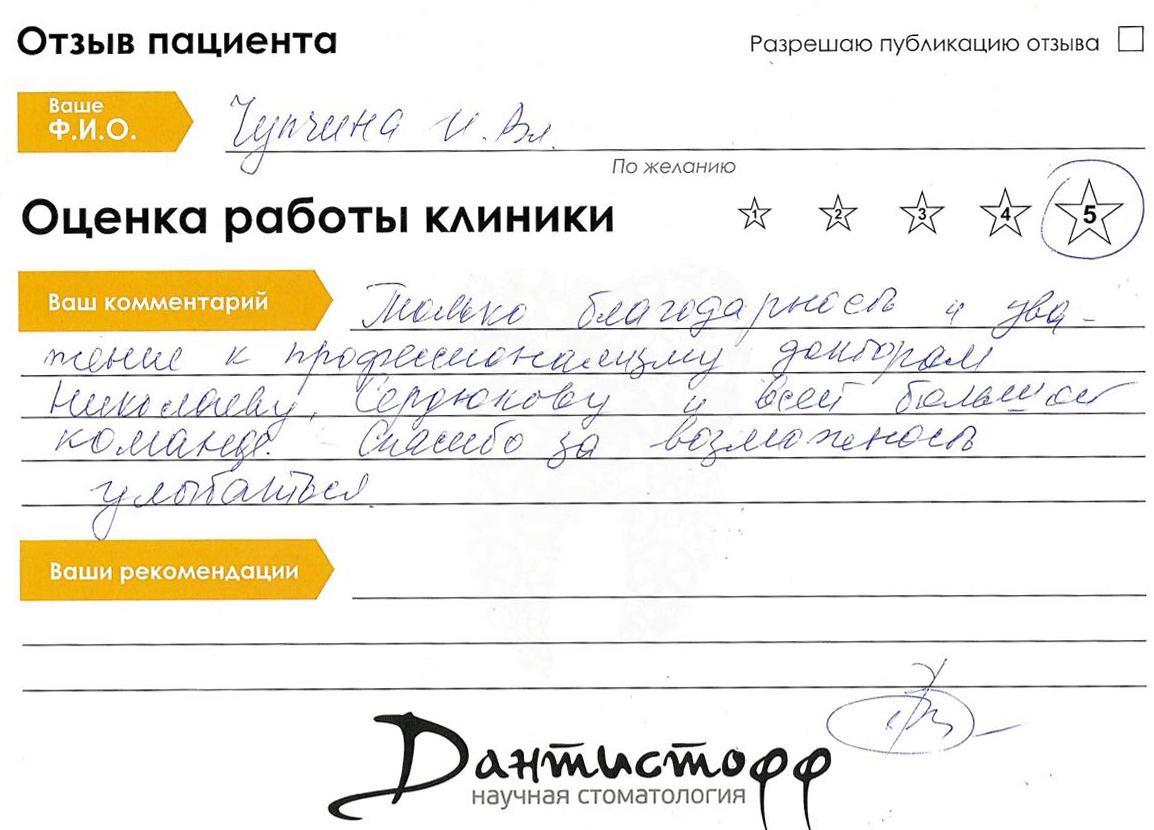 Отзыв пациента
Разрешаю публикацию отзыва
Ваше
Ф.И.О.
Чупчина И. Вл.
По желанию
Оценка работы клиники
1 2 3 4 5
Ваш комментарий
Только благодарность и ува-
жение к профессионализму докторам
Николаеву, Сердюкову и всей большой
команде. Спасибо за возможность
улыбаться
Ваши рекомендации
Дантистофф
научная стоматология